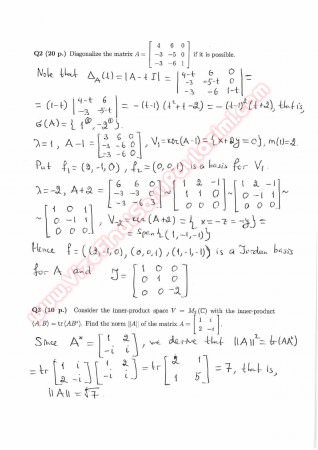 Q2 (20 p.) Diagonalize the matrix A = [ 4 6 0 ; -3 -5 0 ; -3 -6 1 ] if it is possible.
Note that Δ_A(t) = |A - t I| = | 4-t 6 0 ; -3 -5-t 0 ; -3 -6 1-t | =
= (1-t) | 4-t 6 ; -3 -5-t | = -(t-1)(t²+t-2) = -(t-1)²(t+2), that is,
σ(A) = { 1^(2), -2^(1) }.
λ=1, A-1 = [ 3 6 0 ; -3 -6 0 ; -3 -6 0 ], V₁ = ker(A-1) = { x+2y=0 }, m(1)=2.
Put f₁ = (2,-1,0), f₂ = (0,0,1) is a basis for V₁.
λ=-2, A+2 = [ 6 6 0 ; -3 -3 0 ; -3 -6 3 ] ~ [ 1 2 -1 ; 1 1 0 ; 0 0 0 ] ~ [ 1 2 -1 ; 0 -1 1 ; 0 0 0 ] ~
~ [ 1 0 1 ; 0 -1 1 ; 0 0 0 ], V₋₂ = ker(A+2) = { x = -z = -y } =
= Span{ (1,-1,-1) }
Hence f = ((2,-1,0), (0,0,1), (1,-1,-1)) is a Jordan basis
for A and J = [ 1 0 0 ; 0 1 0 ; 0 0 -2 ]
Q3 (10 p.) Consider the inner-product space V = M₂(ℂ) with the inner-product
⟨A,B⟩ = tr(AB*). Find the norm ||A|| of the matrix A = [ 1 i ; 2 -i ].
Since A* = [ 1 2 ; -i i ], we derive that ||A||² = tr(AA*)
= tr [ 1 i ; 2 -i ] [ 1 2 ; -i i ] = tr [ 2 1 ; 1 5 ] = 7, that is,
||A|| = √7.